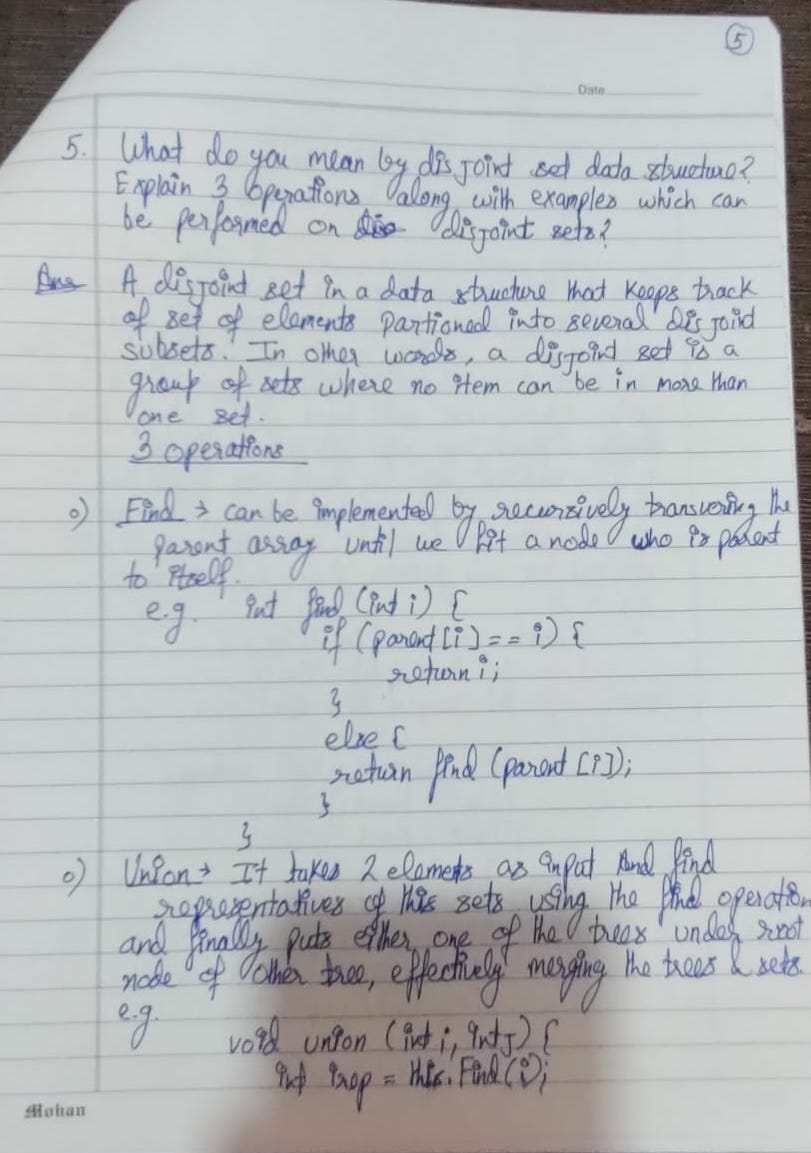 5
Date
5. What do you mean by disjoint set data structure?
Explain 3 operations along with examples which can
be performed on disjoint sets?
Ans A disjoint set in a data structure that keeps track
of set of elements partioned into several disjoint
subsets. In other words, a disjoint set is a
group of sets where no item can be in more than
one set.
3 operations
o) Find → can be implemented by recursively transvering the
parent array until we hit a node who is parent
to itself.
e.g. int find (int i) {
if (parent[i] == i) {
return i;
}
else {
return find (parent [i]);
}
}
o) Union → It takes 2 elemets as input And find
representatives of this sets using the find operation
and finally puts either one of the trees under root
node of other tree, effectively merging the trees & sets.
e.g.
void union (int i, int j) {
int irep = this. Find (i);
Mohan